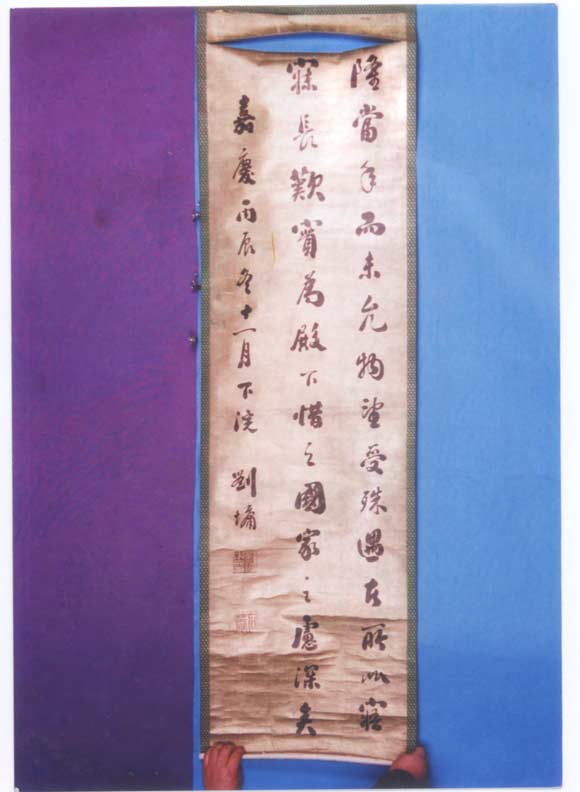 隆當年而未允物望受殊遇者所以寤
寐長歎實為殿下惜之國家之慮深矣
嘉慶丙辰冬十一月下浣 劉墉